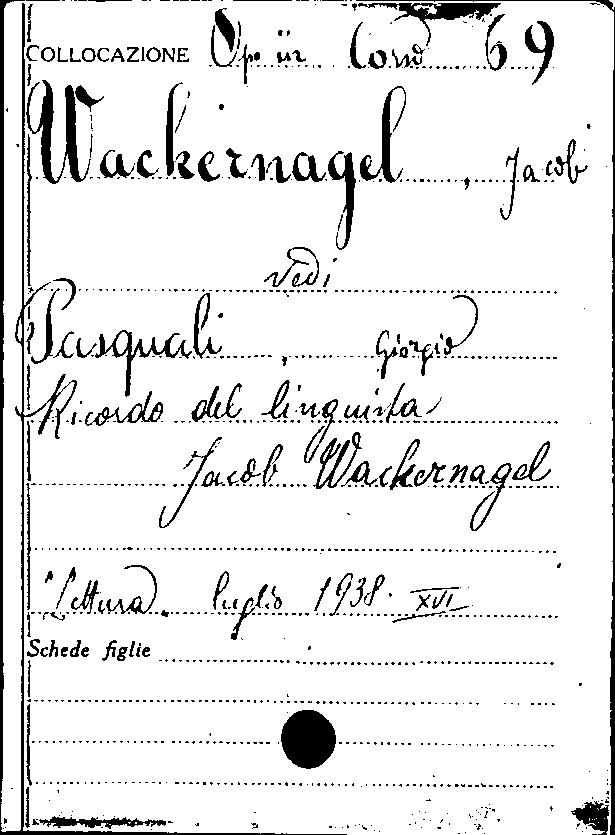 COLLOCAZIONE Op. in Corso 69
Wackernagel, Jacob
Vedi
Pasquali, Giorgio
Ricordo del linguista
Jacob Wackernagel
"Lettura". luglio 1938. XVI
Schede figlie